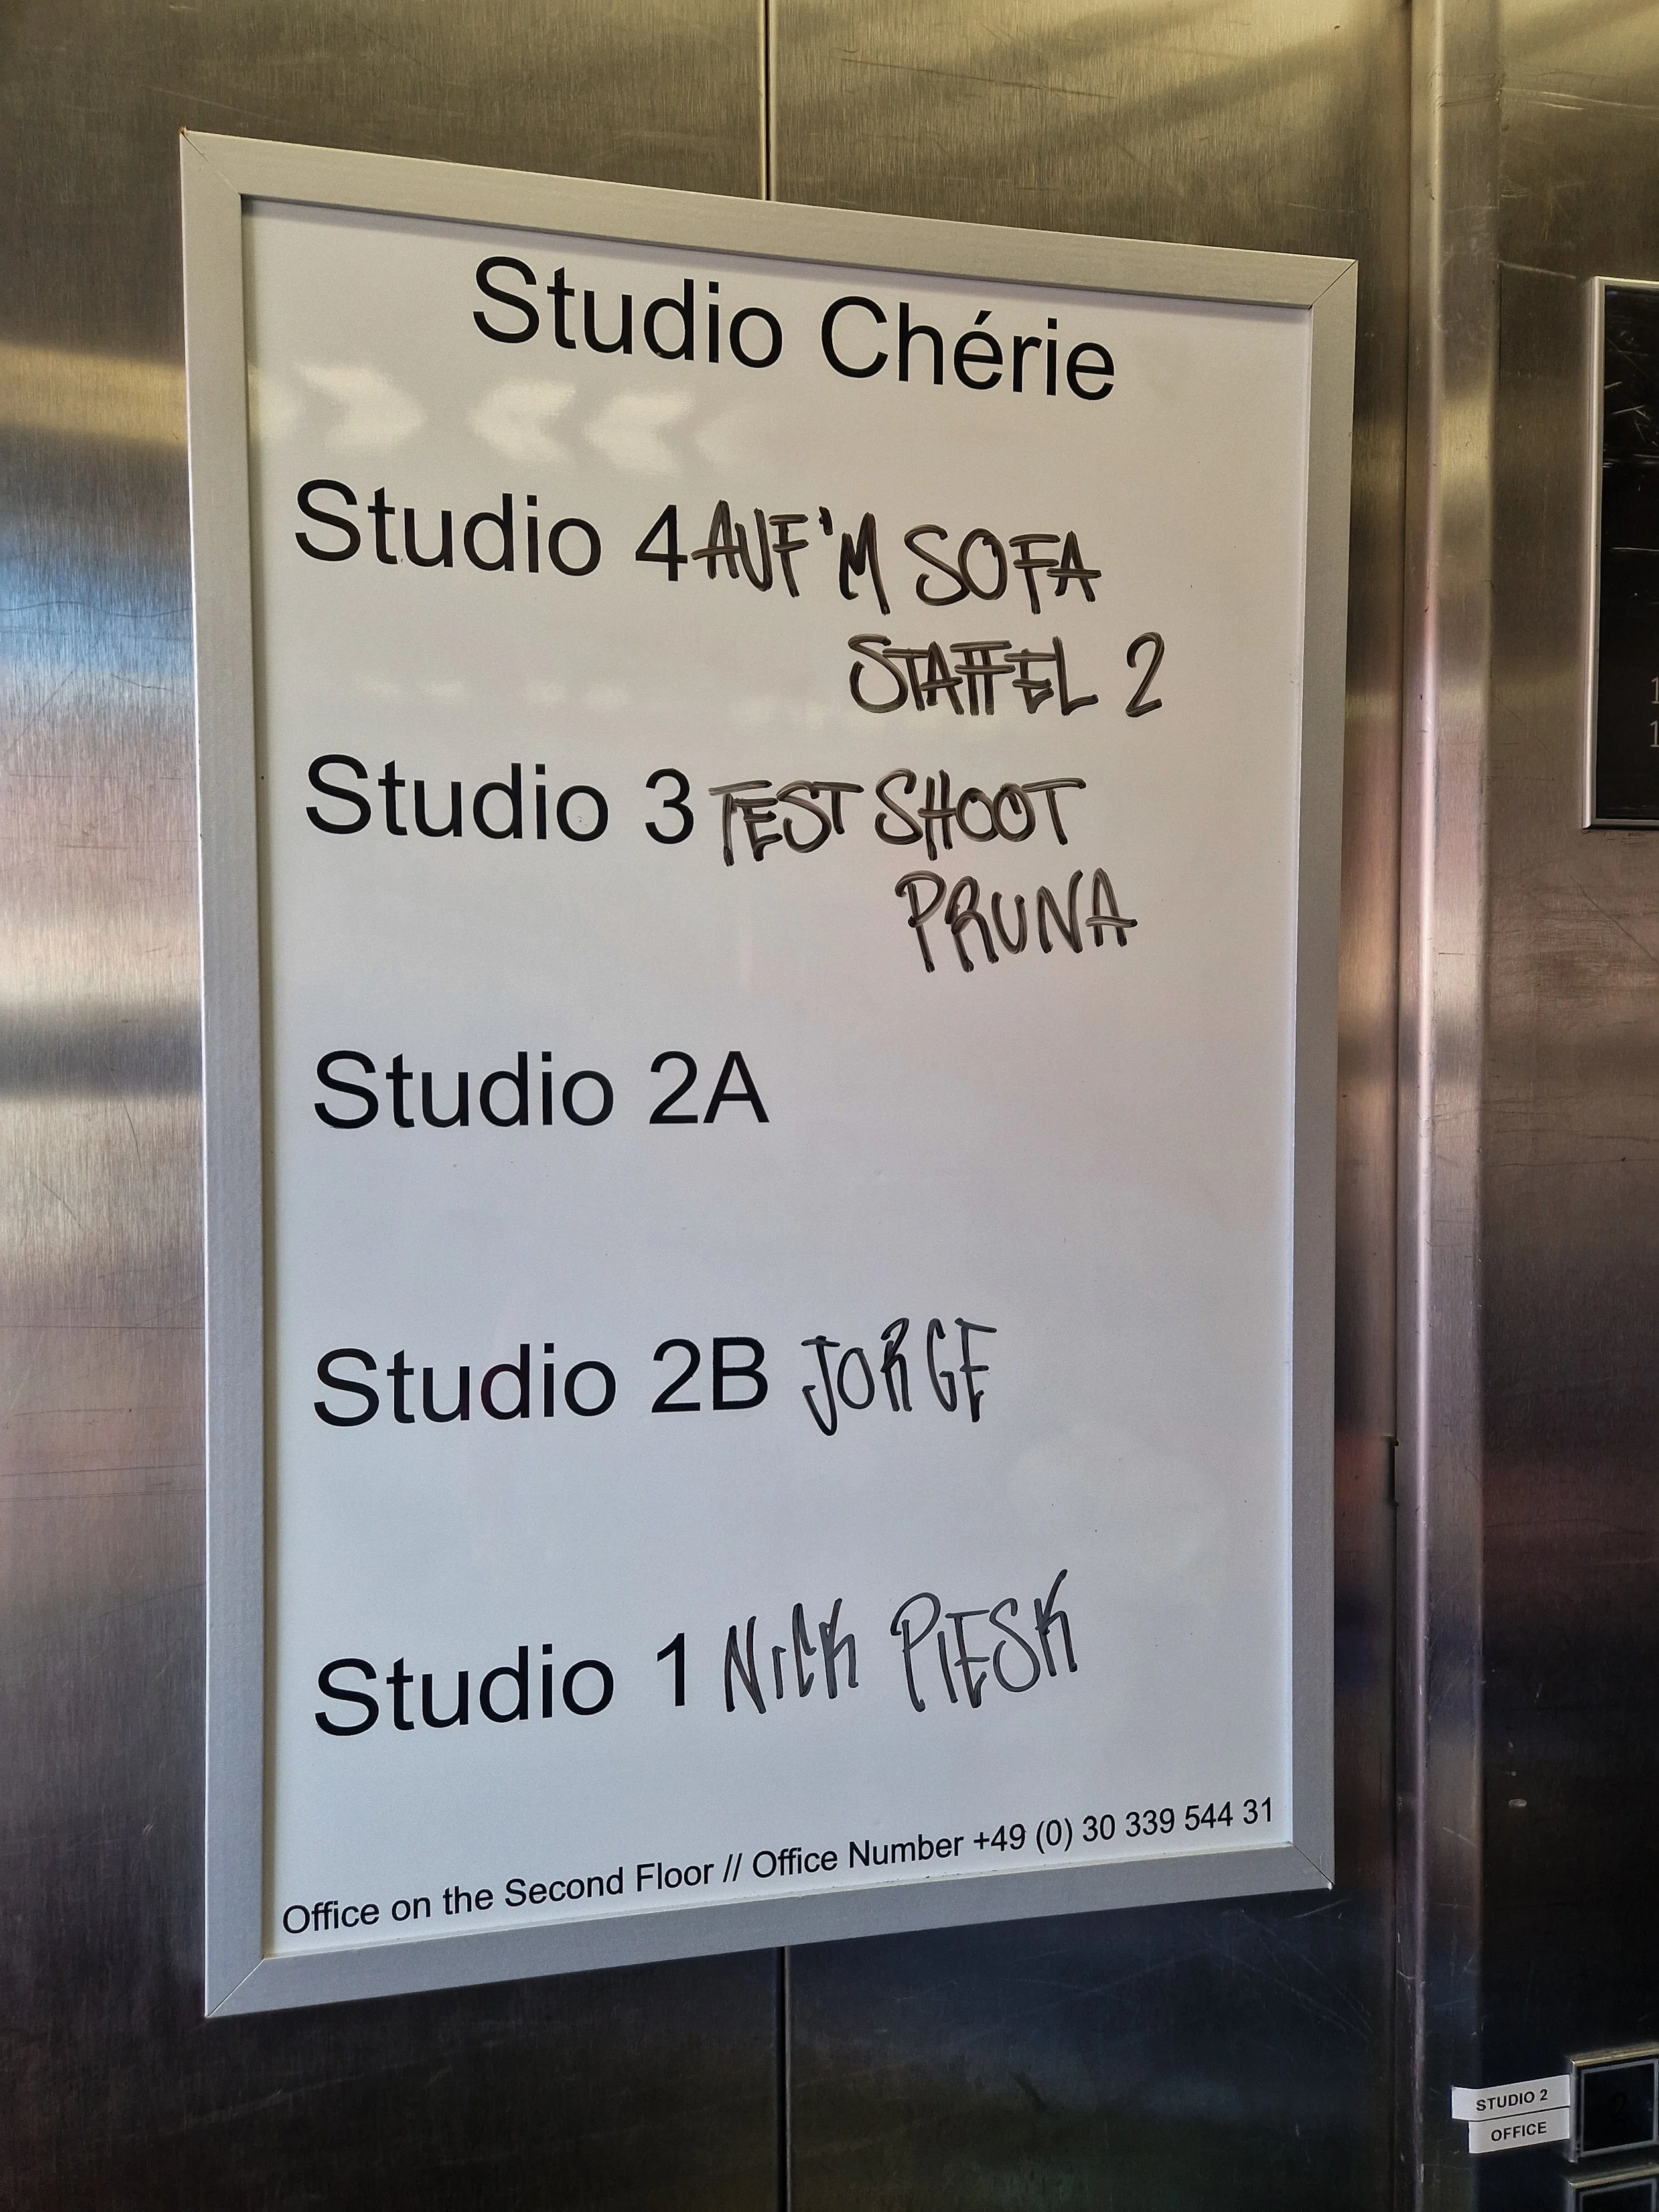 Studio Chérie
Studio 4 AUF'M SOFA
STAFFEL 2
Studio 3 TEST SHOOT
PRUNA
Studio 2A
Studio 2B JORGE
Studio 1 NICK PIESK
Office on the Second Floor // Office Number +49 (0) 30 339 544 31
STUDIO 2
OFFICE
2